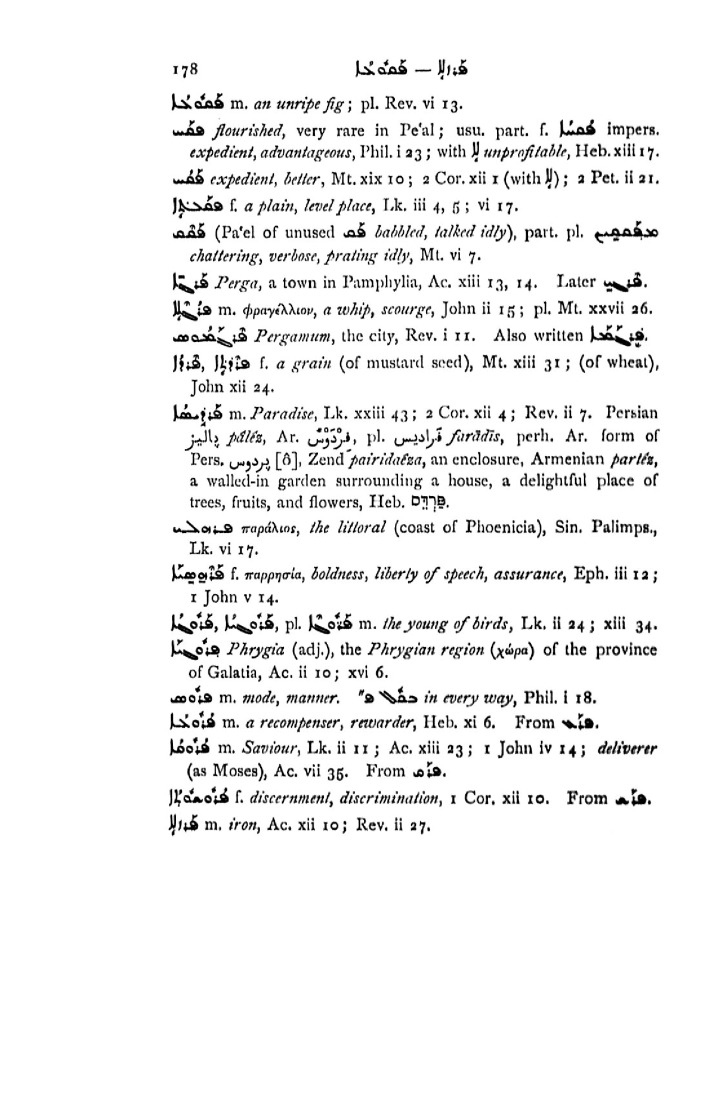 178 ܦܩܘܥܐ — ܦܪܙܠܐ
ܦܩܘܥܐ m. an unripe fig; pl. Rev. vi 13.
ܦܩܚ flourished, very rare in Pe'al; usu. part. f. ܦܩܚܐ impers.
expedient, advantageous, Phil. i 23; with ܠܐ unprofitable, Heb. xiii 17.
ܦܩܚ expedient, better, Mt. xix 10; 2 Cor. xii 1 (with ܠܐ); 2 Pet. ii 21.
ܦܩܥܬܐ f. a plain, level place, Lk. iii 4, 5; vi 17.
ܦܩܩ (Pa'el of unused ܦܩ babbled, talked idly), part. pl. ܡܦܩܩܝܢ
chattering, verbose, prating idly, Mt. vi 7.
Perga, a town in Pamphylia, Ac. xiii 13, 14. Later
ܦܪܓܠܐ m. φραγέλλιον, a whip, scourge, John ii 15; pl. Mt. xxvii 26.
ܦܪܓܡܘܣ Pergamum, the city, Rev. i 11. Also written
ܦܪܕܐ, ܦܪܕܬܐ f. a grain (of mustard seed), Mt. xiii 31; (of wheat),
John xii 24.
ܦܪܕܝܣܐ m. Paradise, Lk. xxiii 43; 2 Cor. xii 4; Rev. ii 7. Persian
پاليز pālēz, Ar. فردوس, pl. فراديس farādīs, perh. Ar. form of
Pers. پردوس [ô], Zend pairidaêza, an enclosure, Armenian partēz,
a walled-in garden surrounding a house, a delightful place of
trees, fruits, and flowers, Heb. פַּרְדֵּס.
παράλιος, the littoral (coast of Phoenicia), Sin. Palimps.,
Lk. vi 17.
ܦܪܗܣܝܐ f. παρρησία, boldness, liberty of speech, assurance, Eph. iii 12;
1 John v 14.
ܦܪܘܓܐ, ܦܪܘܓܝܐ, pl. ܦܪܘܓܐ m. the young of birds, Lk. ii 24; xiii 34.
ܦܪܘܓܝܐ Phrygia (adj.), the Phrygian region (χώρα) of the province
of Galatia, Ac. ii 10; xvi 6.
ܦܪܘܣ m. mode, manner. ܒܟܠ ܦ″ in every way, Phil. i 18.
ܦܪܘܥܐ m. a recompenser, rewarder, Heb. xi 6. From ܦܪܥ.
ܦܪܘܩܐ m. Saviour, Lk. ii 11; Ac. xiii 23; 1 John iv 14; deliverer
(as Moses), Ac. vii 35. From ܦܪܩ.
ܦܪܘܫܘܬܐ f. discernment, discrimination, 1 Cor. xii 10. From ܦܪܫ.
ܦܪܙܠܐ m. iron, Ac. xii 10; Rev. ii 27.